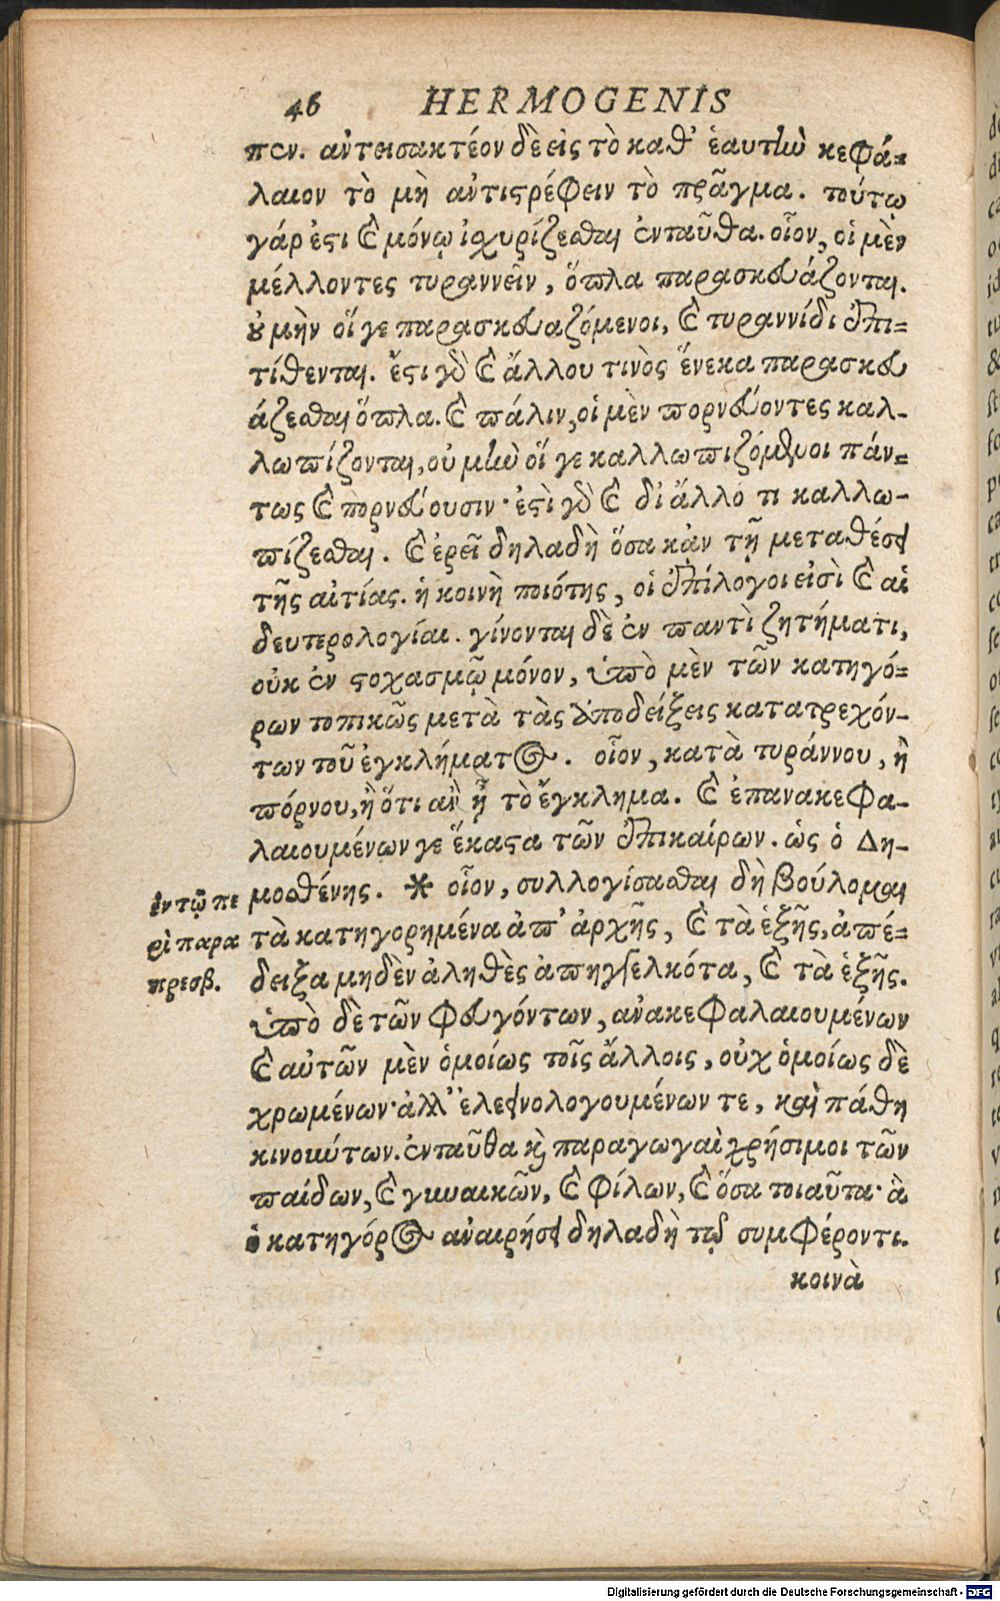 46 HERMOGENIS
πεν. ἀντεισακτέον δὲ εἰς τὸ καθ' ἑαυτὴν κεφά-
λαιον τὸ μὴ ἀντιστρέφειν τὸ πρᾶγμα. τούτῳ
γάρ ἐστι καὶ μόνῳ ἰσχυρίζεσθαι ἐνταῦθα. οἷον, οἱ μὲν
μέλλοντες τυραννεῖν, ὅπλα παρασκευάζονται.
οὐ μὴν οἵ γε παρασκευαζόμενοι, καὶ τυραννίδι ἐπι-
τίθενται. ἔστι γὰρ καὶ ἄλλου τινὸς ἕνεκα παρασκευ
άζεσθαι ὅπλα. καὶ πάλιν, οἱ μὲν πορνεύοντες καλ-
λωπίζονται, οὐ μὴν οἵ γε καλλωπιζόμενοι πάν-
τως καὶ πορνεύουσιν· ἐστὶ γὰρ καὶ δι' ἄλλο τι καλλω-
πίζεσθαι. καὶ ἐρεῖ δηλαδὴ ὅσα κἀν τῇ μεταθέσει
τῆς αἰτίας. ἡ κοινὴ ποιότης, οἱ ἐπίλογοι εἰσὶ καὶ αἱ
δευτερολογίαι. γίνονται δὲ ἐν παντὶ ζητήματι,
οὐκ ἐν στοχασμῷ μόνον, ὑπὸ μὲν τῶν κατηγό-
ρων τοπικῶς μετὰ τὰς ἀποδείξεις κατατρεχόν-
των τοῦ ἐγκλήματος. οἷον, κατὰ τυράννου, ἢ
πόρνου, ἢ ὅτι ἂν ᾖ τὸ ἔγκλημα. καὶ ἐπανακεφα-
λαιουμένων γε ἕκαστα τῶν ἐπικαίρων. ὡς ὁ Δη-
μοσθένης. * οἷον, συλλογίσασθαι δὴ βούλομαι
τὰ κατηγορημένα ἀπ' ἀρχῆς, καὶ τὰ ἑξῆς, ἀπέ-
δειξα μηδὲν ἀληθὲς ἀπηγγελκότα, καὶ τὰ ἑξῆς.
ὑπὸ δὲ τῶν φευγόντων, ἀνακεφαλαιουμένων
καὶ αὐτῶν μὲν ὁμοίως τοῖς ἄλλοις, οὐχ ὁμοίως δὲ
χρωμένων· ἀλλ' ἐλεεινολογουμένων τε, καὶ πάθη
κινούντων. ἐνταῦθα καὶ παραγωγαὶ χρήσιμοι τῶν
παίδων, καὶ γυναικῶν, καὶ φίλων, καὶ ὅσα τοιαῦτα· ἃ
ὁ κατηγόρος ἀναιρήσει δηλαδὴ τῷ συμφέροντι.
κοινὰ
ἐν τῷ πε
ρὶ παρα
πρεσβ.
Digitalisierung gefördert durch die Deutsche Forschungsgemeinschaft - DFG